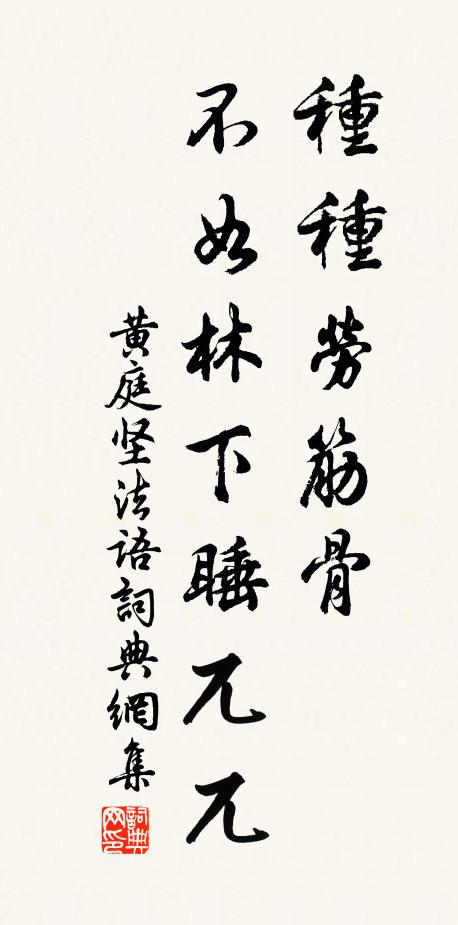 種種勞筋骨
不如林下睡兀兀
黄庭坚法語詞典網集
詞典
网印